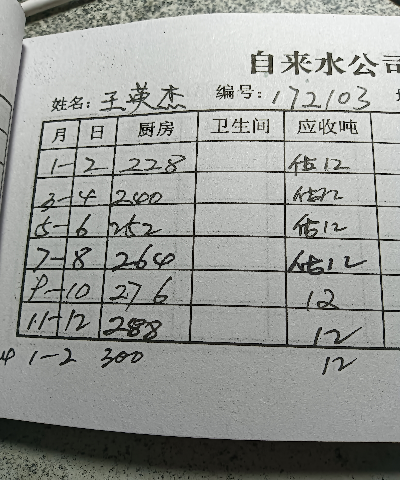 自来水公司
姓名：王英杰 编号：172103
月 日 厨房 卫生间 应收吨
1-2 228 估12
3-4 240 估12
5-6 252 估12
7-8 264 估12
9-10 276 12
11-12 288 12
1-2 300 12